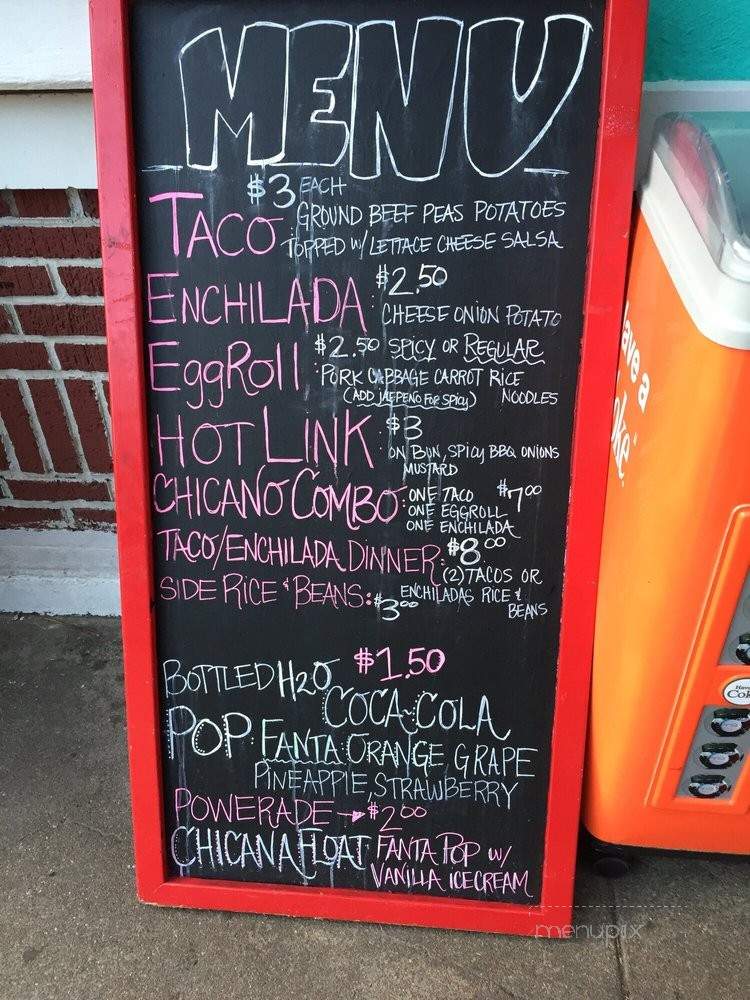 MENU
$3 EACH
TACO GROUND BEEF PEAS POTATOES
TOPPED W/ LETTACE CHEESE SALSA
ENCHILADA: $2.50
CHEESE ONION POTATO
EggRoll: $2.50 SPICY OR REGULAR
PORK CABBAGE CARROT RICE
(ADD JALEPENO FOR SPICY) NOODLES
HOT LINK: $3
ON BUN, SPICY BBQ ONIONS
MUSTARD
CHICANO COMBO: ONE TACO $7.00
ONE EGGROLL
ONE ENCHILADA
TACO/ENCHILADA DINNER: $8.00
(2) TACOS OR
ENCHILADAS RICE &
BEANS
SIDE RICE & BEANS: $3.00
BOTTLED H2O $1.50
COCA-COLA
POP: FANTA: ORANGE, GRAPE
PINEAPPLE, STRAWBERRY
POWERADE → $2.00
CHICANA FLOAT FANTA POP W/
VANILLA ICECREAM
have a
Coke
Have a
Coke
menupix